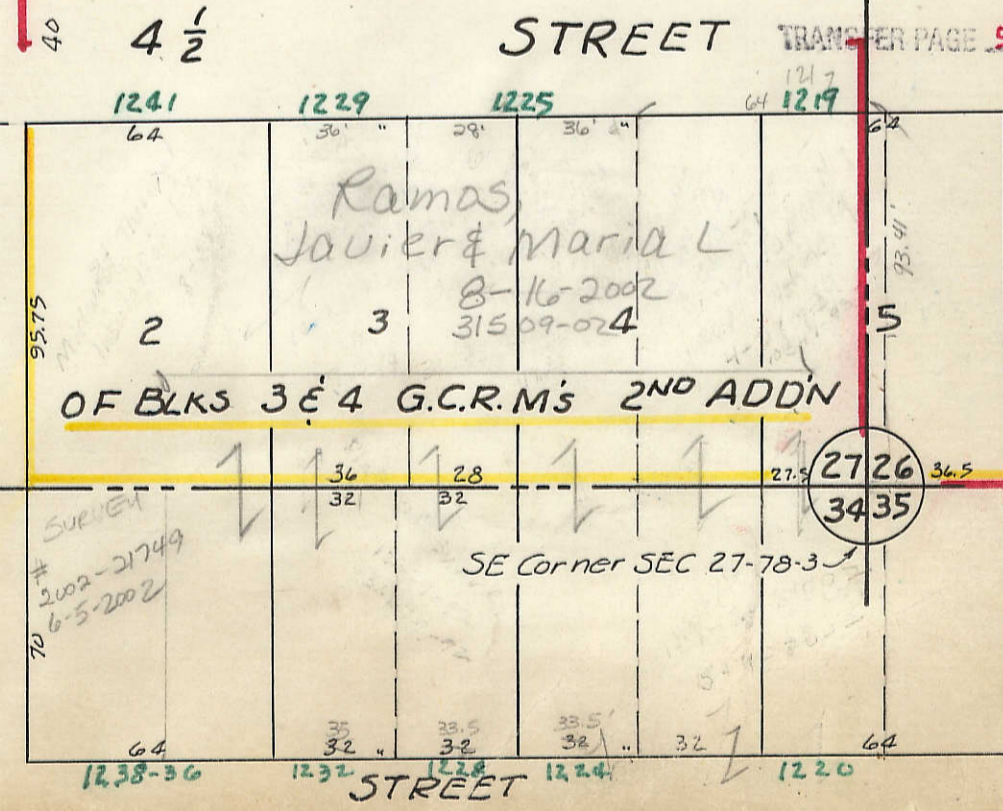 40 4 1/2 STREET TRANSFER PAGE
1217
1241 1229 1225 64 1219
64 36' " 28' 36' " 64
Ramos,
Javier & Maria L
8-16-2002
315 09-02
93.41'
95.75
2 3 4 5
OF BLKS 3 & 4 G.C.R.M's 2ND ADD'N
36 28 27.5 27 26 36.5
32 32 34 35
SURVEY
#
2002-21749
6-5-2002
SE Corner SEC 27-78-3
70
35 33.5 33.5'
64 32 " 32 32 " 32 64
1238-36 1232 1228 1224 1220
STREET